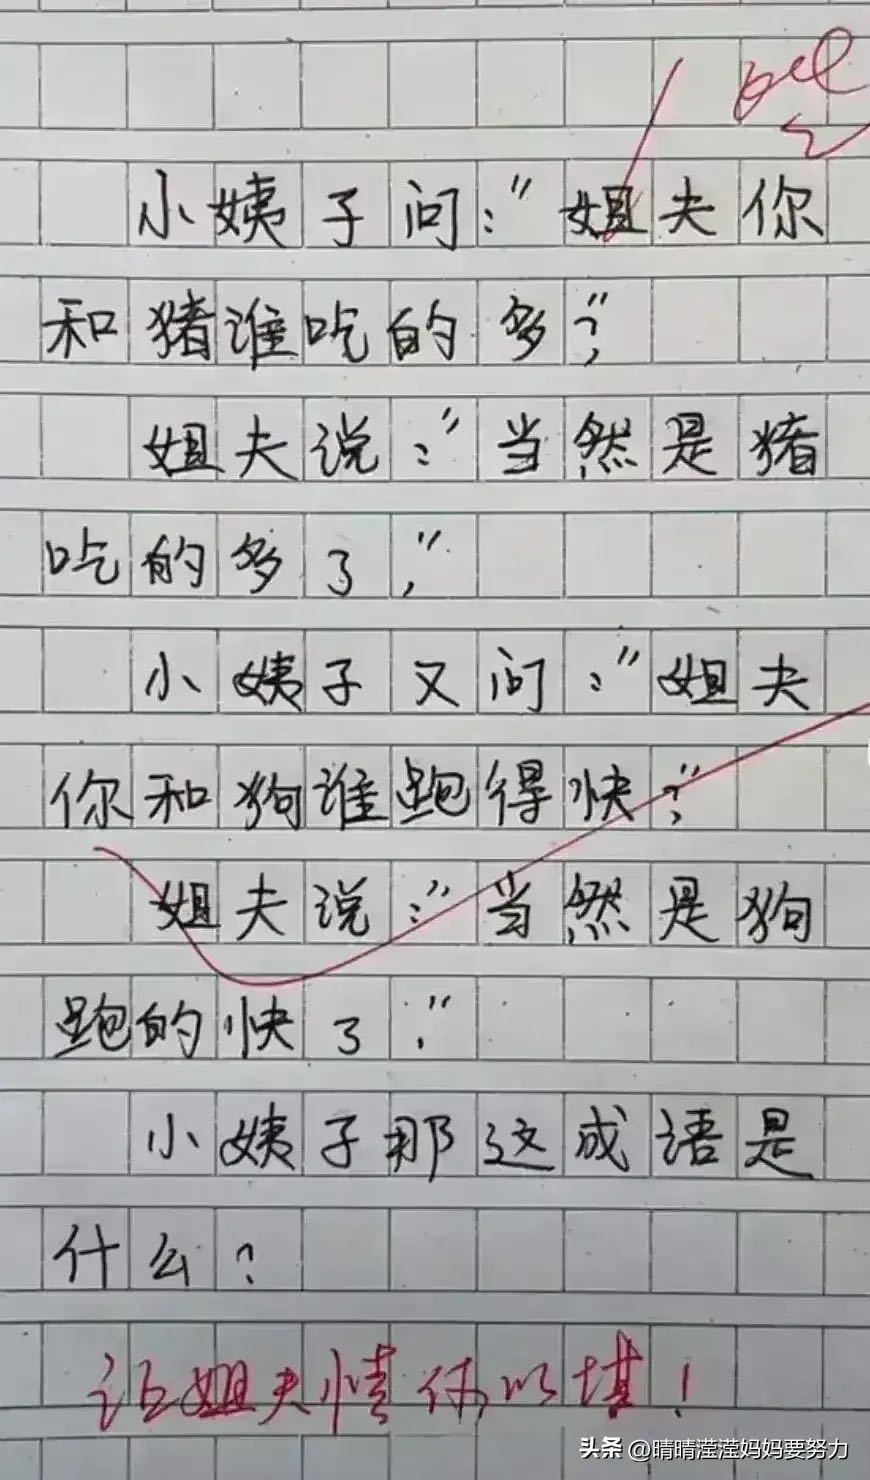 小姨子问:"姐夫你
和猪谁吃的多?"
姐夫说:"当然是猪
吃的多了,"
小姨子又问:"姐夫
你和狗谁跑得快?"
姐夫说:"当然是狗
跑的快了."
小姨子那这成语是
什么?
让姐夫情何以堪!
头条 @晴晴滢滢妈妈要努力